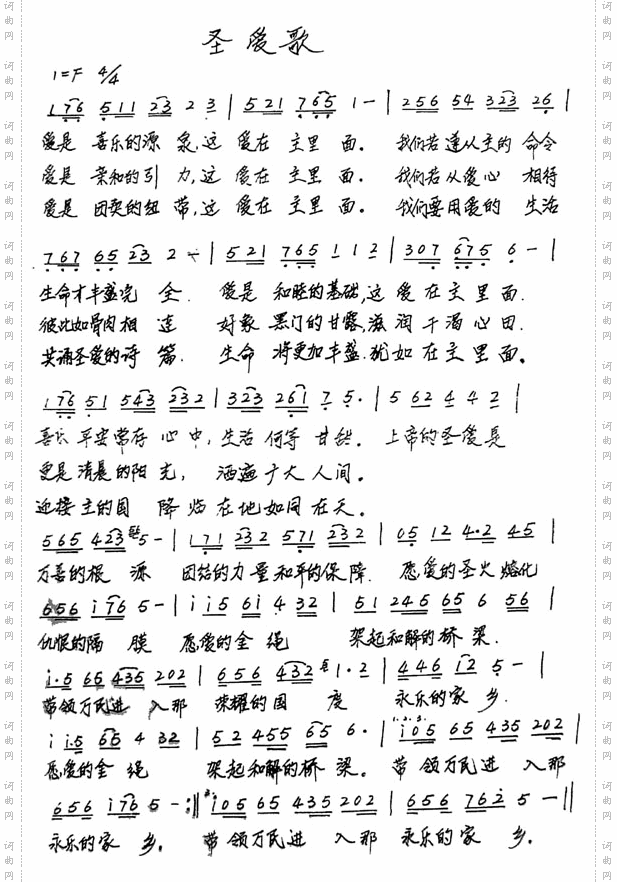 圣爱歌
1=F 4/4
176 511 23 2 3 | 521 765 1 - | 256 54 323 26 |
爱是 喜乐的源 泉,这 爱在 主里 面. 我们若遵从主的 命令
爱是 亲和的引 力,这 爱在 主里 面. 我们若从爱心 相待
爱是 团契的纽 带,这 爱在 主里 面. 我们要用爱的 生活
767 65 23 2 - | 521 765 1 1 2 | 307 675 6 - |
生命才丰盛完 全. 爱是 和睦的基础,这 爱 在 主 里 面.
彼此如骨肉相 连 好象 黑门的甘露,滋 润 干 渴 心 田.
共诵圣爱的诗 篇. 生命 将更加丰盛.犹 如 在 主 里 面。
176 51 543 232 | 323 261 7 5· | 5 62 4 4 2 |
喜乐 平安常存 心 中, 生活 何等 甘甜. 上帝的圣爱是
更是 清晨的阳 光, 洒遍 广大 人间.
迎接 主的国 降 临 在 地 如 同 在 天.
565 423 5 - | 171 232 571 232 | 05 12 4·2 45 |
万善的根 源 团结的力 量 和平的保 障. 愿爱的圣火 熔化
656 i76 5 - | i i5 6i 4 32 | 51 245 65 6 56 |
仇恨的隔 膜 愿爱的金 绳 架起和解的桥 梁.
i·5 65 435 202 | 656 432 1·2 | 446 i2 5 - |
带领万民进 入那 荣耀的国 度 永乐的家 乡.
i i·5 65 4 32 | 52 455 65 6· | i05 65 435 202 |
愿爱的金 绳 架起和解的桥 梁。 带 领万民进 入那
656 i76 5 - :|| i05 65 435 202 | 656 762 5 - ||
永乐的家 乡. 带 领万民进 入那 永乐的家 乡.
词曲网